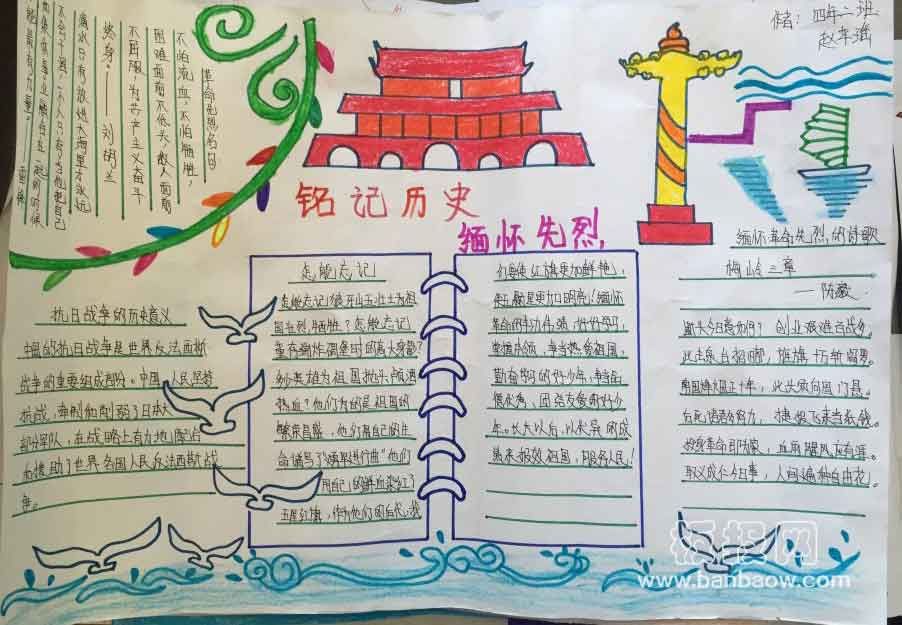 作者：四年二班
赵梓瑶
革命思想名句
不怕流血，不怕牺牲，
困难面前不低头，敌人面前
不屈服，为共产主义奋斗
终身！——刘胡兰
滴水只有放进大海里才永远
不会干涸，一个人只有当他把自己
和集体事业融合在一起的时候
能最有力量。——雷锋
铭记历史
缅怀先烈
抗日战争的历史意义
中国的抗日战争是世界反法西斯
战争的重要组成部分。中国人民坚持
抗战，牵制和削弱了日本大
部分军队，在战略上有力地配合
和援助了世界各国人民反法西斯战
争。
怎能忘记
怎能忘记狼牙山五壮士为祖
国壮烈牺牲？怎能忘记
董存瑞炸碉堡时的高大身影？
多少英雄为祖国抛头颅洒
热血？他们为的是祖国的
繁荣昌盛，他们用自己的生
命谱写了“义勇军进行曲”他们
用自己的鲜血染红了
五星红旗，作为他们的后代，我
们要使红旗更加鲜艳，
使五颗星更加明亮！缅怀
革命的丰功伟绩，好好学习，
掌握本领，争当热爱祖国，
勤奋学习的好少年，争当品
德优秀、团结友爱的好少
年。长大以后，以优异的成
绩来报效祖国，服务人民！
缅怀革命先烈的诗歌
梅岭三章
——陈毅
断头今日意如何？创业艰难百战多。
此去泉台招旧部，旌旗十万斩阎罗。
南国烽烟正十年，此头须向国门悬。
后死诸君多努力，捷报飞来当纸钱。
投身革命即为家，血雨腥风应有涯。
取义成仁今日事，人间遍种自由花。
板报网
www.banbaow.com